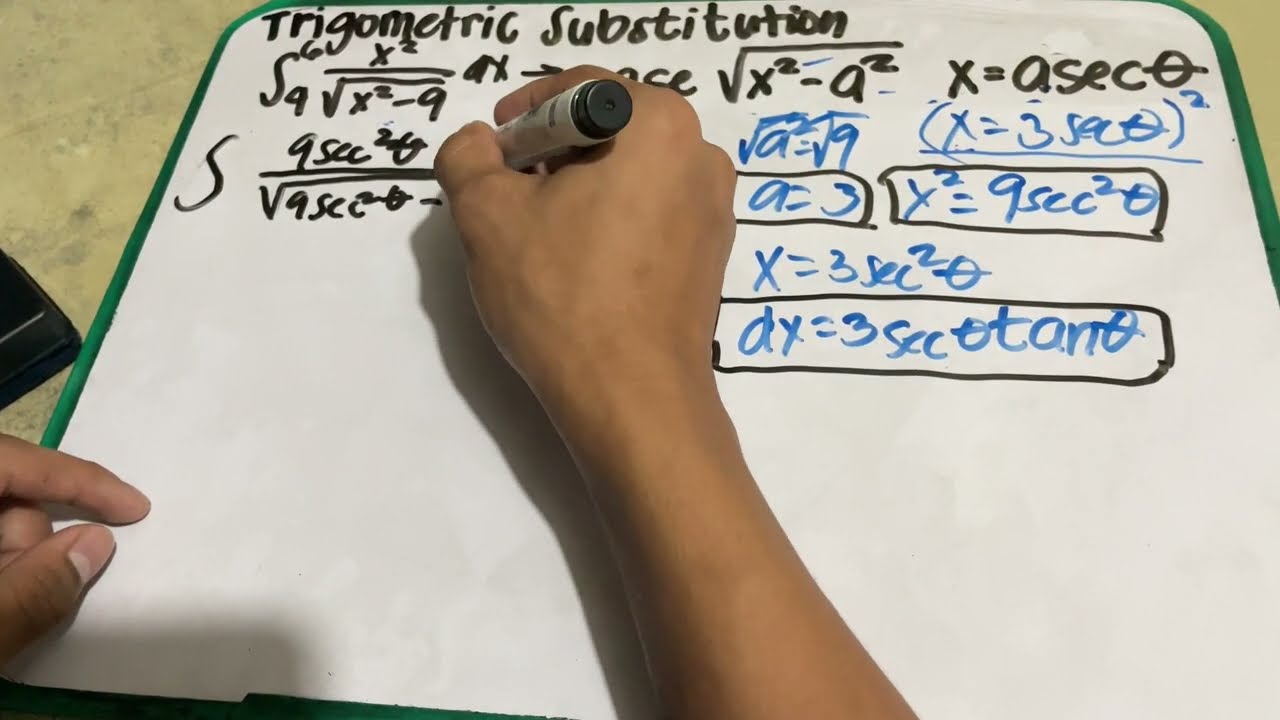 Trigometric Substitution
∫₄⁶ x²/√x²-9 dx → √x²-a² x=asecθ
∫ 9sec²θ/√9sec²θ - √a²=√9 (x=3secθ)²
a=3 x²=9sec²θ
x=3sec²θ
dx=3secθtanθ